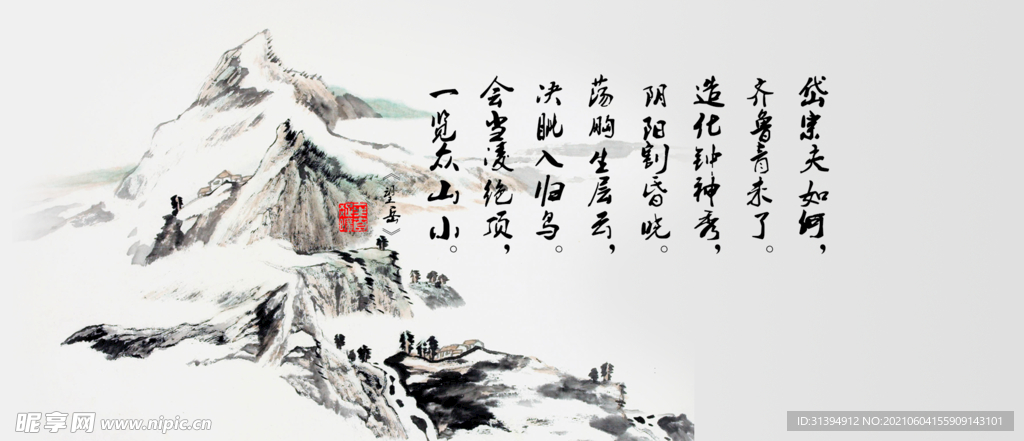 岱宗夫如何，
齐鲁青未了。
造化钟神秀，
阴阳割昏晓。
荡胸生层云，
决眦入归鸟。
会当凌绝顶，
一览众山小。
《望岳》
昵享网 www.nipic.cn
ID:31394912 NO:20210604155909143101